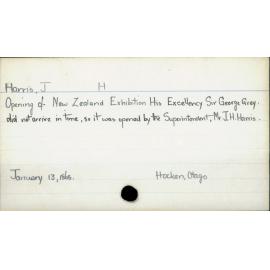 Harris, J H
Opening of New Zealand Exhibition His Excellency Sir George Grey
did not arrive in time, so it was opened by the Superintendent, Mr J.H. Harris.
January 13, 1865.
Hocken, Otago